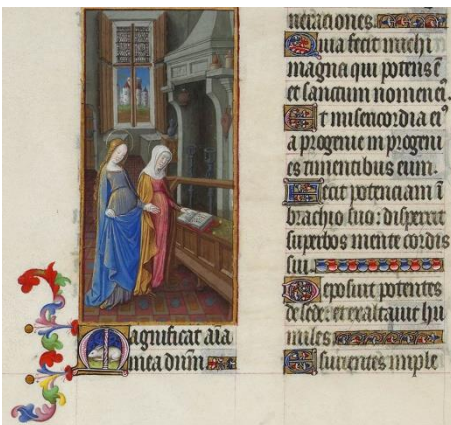 Magnificat aīa
mea dn̄m
neraciones.
Quia fecit michi
magna qui potens ē
et sanctum nomen ei᷒.
Et misericordia ei᷒
a progenie in progeni
es timentibus eum.
Fecit potenciam ī
brachio suo: dispersit
superbos mente cordis
sui.
Deposuit potentes
de sede: et exaltauit hu
miles
Esurientes imple